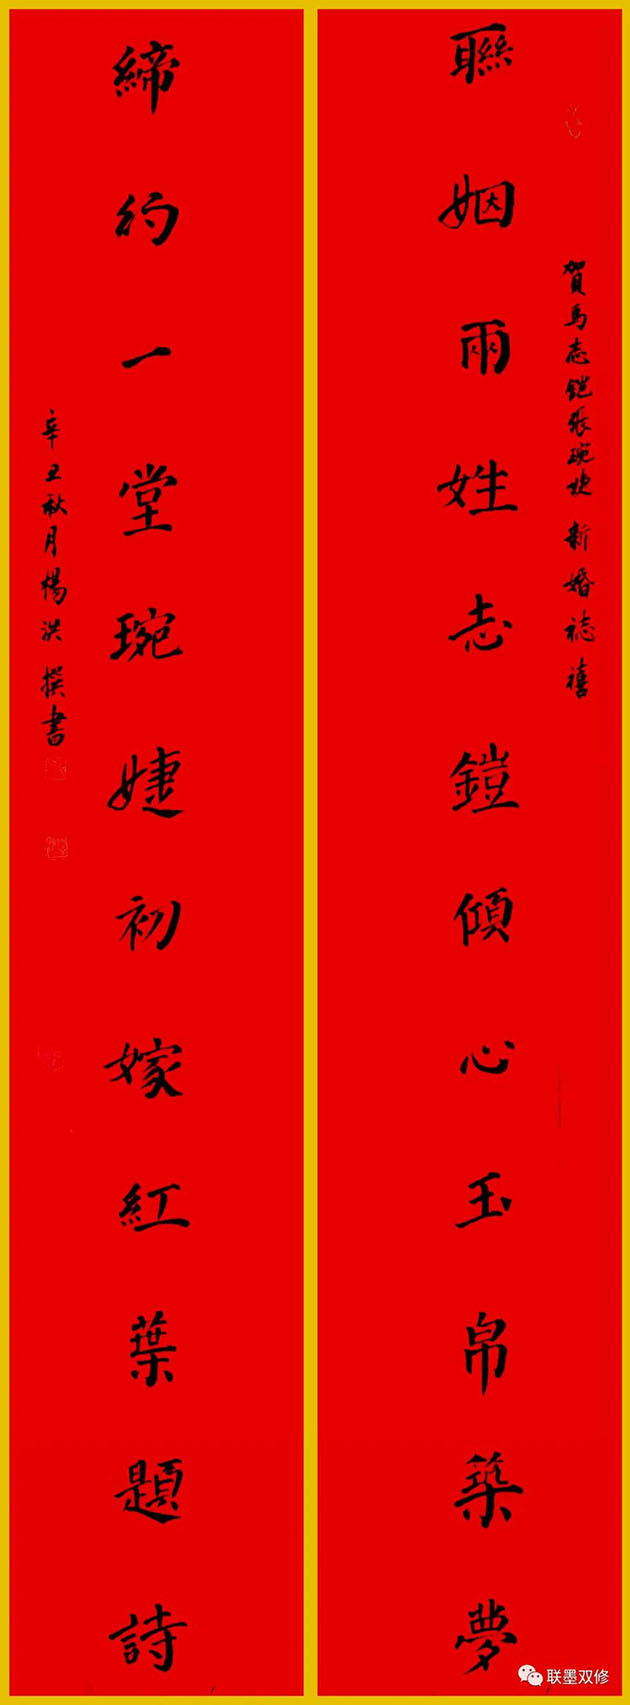 賀馬志鎧張琬婕 新婚誌禧
聯姻兩姓志鎧傾心玉帛築夢
締約一堂琬婕初嫁紅葉題詩
辛丑秋月楊洪撰書
联墨双修